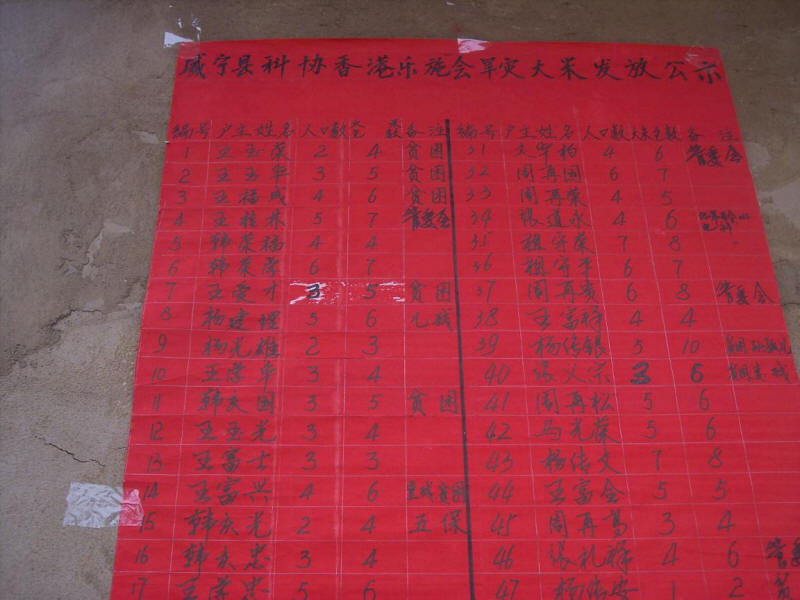 威宁县科协香港乐施会旱灾大米发放公示
编号 户主姓名 人口数 备注 编号 户主姓名 人口数 大米包数 备注
1 王玉荣 2 4 贫困 31 文华柏 4 6 管委会
2 王玉华 3 5 贫困 32 周再国 6 7
3 王福成 4 6 贫困 33 周再荣 4 5
4 王桂林 5 7 管委会 34 张道永 4 6
5 韩荣福 4 4 35 祖守荣 7 8
6 韩荣学 6 7 36 祖守平 6 7
7 王爱才 3 5 贫困 37 周再贵 6 8 管委会
8 杨建 3 6 儿残 38 王富祥 4 4
9 杨光雄 2 3 39 杨传银 5 10
10 王学华 3 4 40 张义宗 3 6
11 韩庆国 3 5 贫困 41 周再松 5 6
12 王玉光 3 4 42 马光荣 5 6
13 王富士 3 3 43 杨传文 7 8
14 王富兴 4 6 44 王富会 5 5
15 韩庆光 2 4 五保 45 周再 3 4
16 韩永忠 3 4 46 张礼祥 4 6 管委
17 王学忠 5 6 47 杨传安 1 2